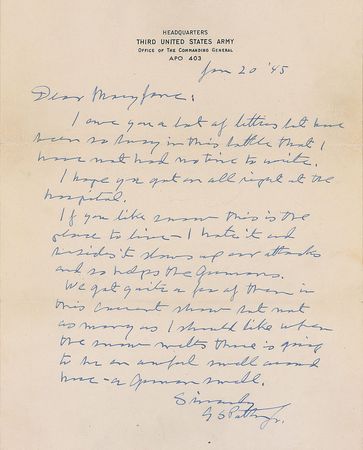 HEADQUARTERS
THIRD UNITED STATES ARMY
OFFICE OF THE COMMANDING GENERAL
APO 403
Jan 20 '45
Dear Mary Jane:
I owe you a lot of letters but have
been so busy in this battle that I
have not had no time to write.
I hope you got on all right at the
hospital.
If you like snow this is the
place to live - I hate it and
besides it slows up our attacks
and so helps the Germans.
We got quite a few of them in
this current show but not
as many as I should like when
the snow melts there is going
to be an awful smell around
here - a German smell.
Sincerely
G S Patton Jr.